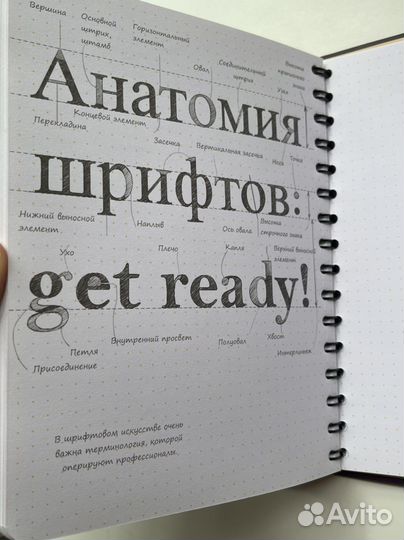 Вершина Основной Горизонтальный
штрих, элемент
штамб Овал Соединительный Высота
штрих прописного
знака
Узел
Анатомия
Концевой элемент
Перекладина Засечка Вертикальная засечка Нога Точка
шрифтов:
Нижний выносной Наплыв Ось овала Высота
элемент строчного знака
Ухо Плечо Капля Верхний выносной
элемент
get ready!
Внутренний просвет Полуовал Хвост
Петля Интерлиньяж
Присоединение
В шрифтовом искусстве очень
важна терминология, которой
оперируют профессионалы.
Avito